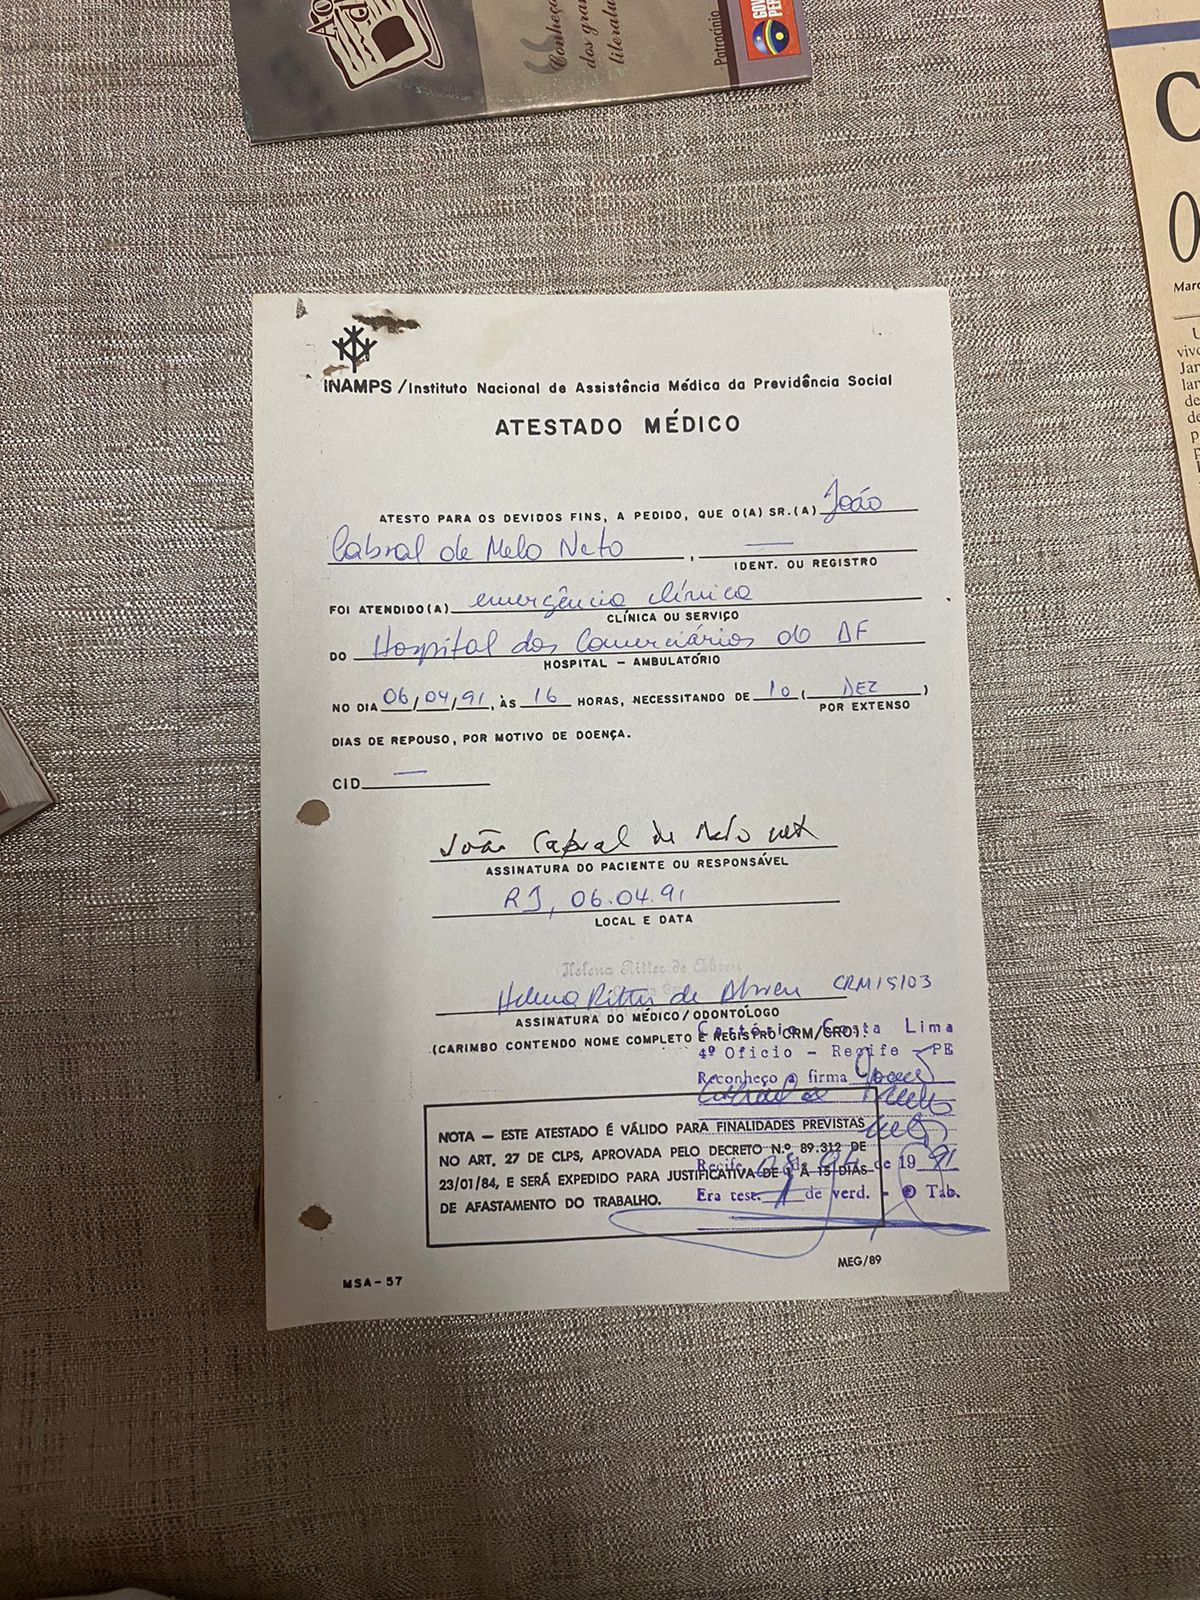 Conheça
dos gran
literatu
Patrocínio
C
O
Marc
INAMPS / Instituto Nacional de Assistência Médica da Previdência Social
ATESTADO MÉDICO
ATESTO PARA OS DEVIDOS FINS, A PEDIDO, QUE O(A) SR.(A) João
Cabral de Melo Neto , —
IDENT. OU REGISTRO
FOI ATENDIDO(A) emergência clínica
CLÍNICA OU SERVIÇO
DO Hospital dos Comerciários do DF
HOSPITAL – AMBULATÓRIO
NO DIA 06/04/91, ÀS 16 HORAS, NECESSITANDO DE 10 ( DEZ )
POR EXTENSO
DIAS DE REPOUSO, POR MOTIVO DE DOENÇA.
CID —
João Cabral de Melo Neto
ASSINATURA DO PACIENTE OU RESPONSÁVEL
RJ, 06.04.91
LOCAL E DATA
Helena Ritter de Abreu
Helena Ritter de Abreu CRM 15103
ASSINATURA DO MÉDICO/ODONTÓLOGO
(CARIMBO CONTENDO NOME COMPLETO E REGISTRO CRM/CRO).
Cartório Costa Lima
4º Oficio – Recife – PE
Reconheço a firma João
Cabral de Melo
Neto
NOTA – ESTE ATESTADO É VÁLIDO PARA FINALIDADES PREVISTAS
NO ART. 27 DE CLPS, APROVADA PELO DECRETO N.º 89.312 DE
23/01/84, E SERÁ EXPEDIDO PARA JUSTIFICATIVA DE 1 À 15 DIAS
DE AFASTAMENTO DO TRABALHO.
Recife de de 19 91
Era test. de verd. - O Tab.
MEG/89
MSA-57